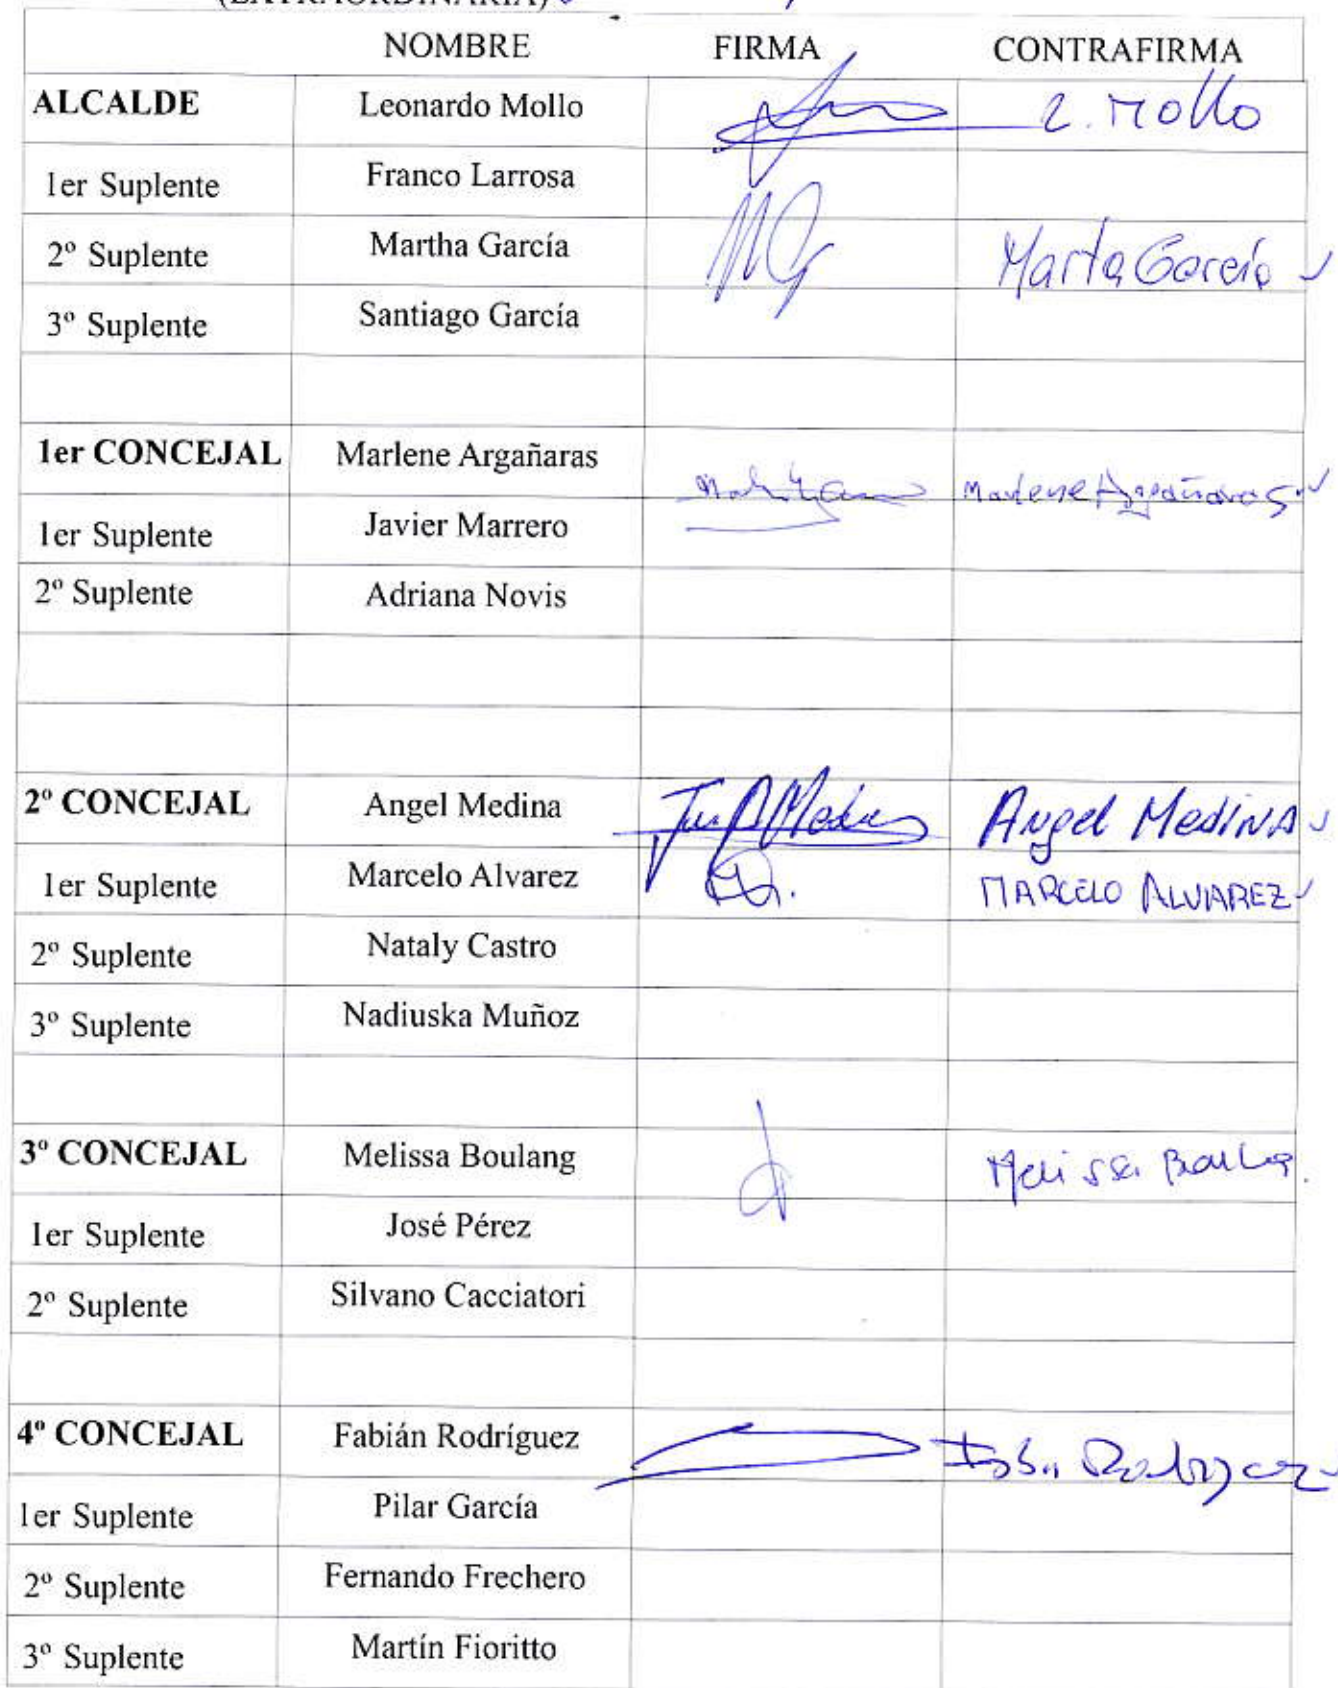 (EXTRAORDINARIA)
NOMBRE FIRMA CONTRAFIRMA
ALCALDE Leonardo Mollo L. Mollo
1er Suplente Franco Larrosa
2º Suplente Martha García MG Marta García
3º Suplente Santiago García
1er CONCEJAL Marlene Argañaras Marlene Argañaras
1er Suplente Javier Marrero
2º Suplente Adriana Novis
2º CONCEJAL Angel Medina Angel Medina
1er Suplente Marcelo Alvarez MARCELO ALVAREZ
2º Suplente Nataly Castro
3º Suplente Nadiuska Muñoz
3º CONCEJAL Melissa Boulang Melissa
1er Suplente José Pérez
2º Suplente Silvano Cacciatori
4º CONCEJAL Fabián Rodríguez
1er Suplente Pilar García
2º Suplente Fernando Frechero
3º Suplente Martín Fioritto